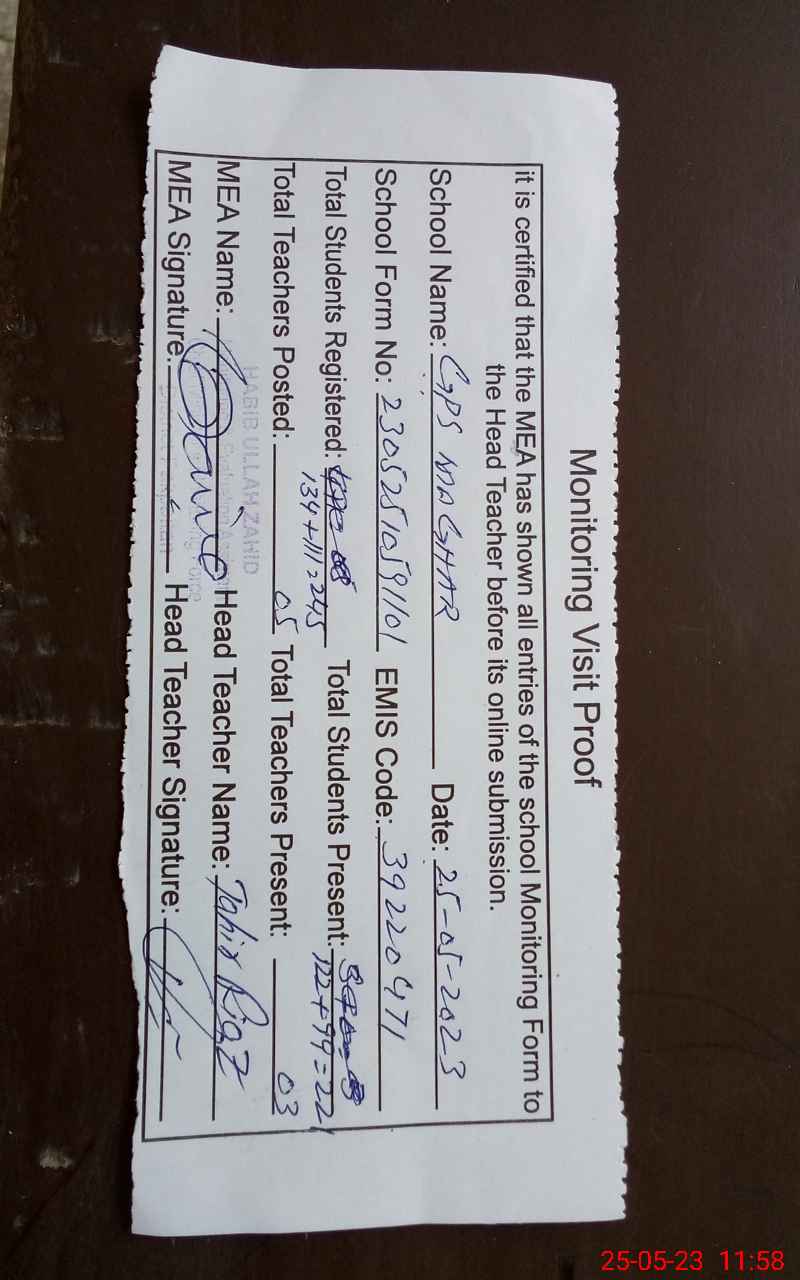 Monitoring Visit Proof
it is certified that the MEA has shown all entries of the school Monitoring Form to
the Head Teacher before its online submission.
School Name: GPS MAGHAR Date: 25-05-2023
School Form No: 23052510591101 EMIS Code: 39220471
Total Students Registered: 134+111=245 Total Students Present: 122+99=221
Total Teachers Posted: 05 Total Teachers Present: 03
HABIB ULLAH ZAHID
MEA Name: Head Teacher Name: Tahir Riaz
MEA Signature: Head Teacher Signature:
25-05-23 11:58